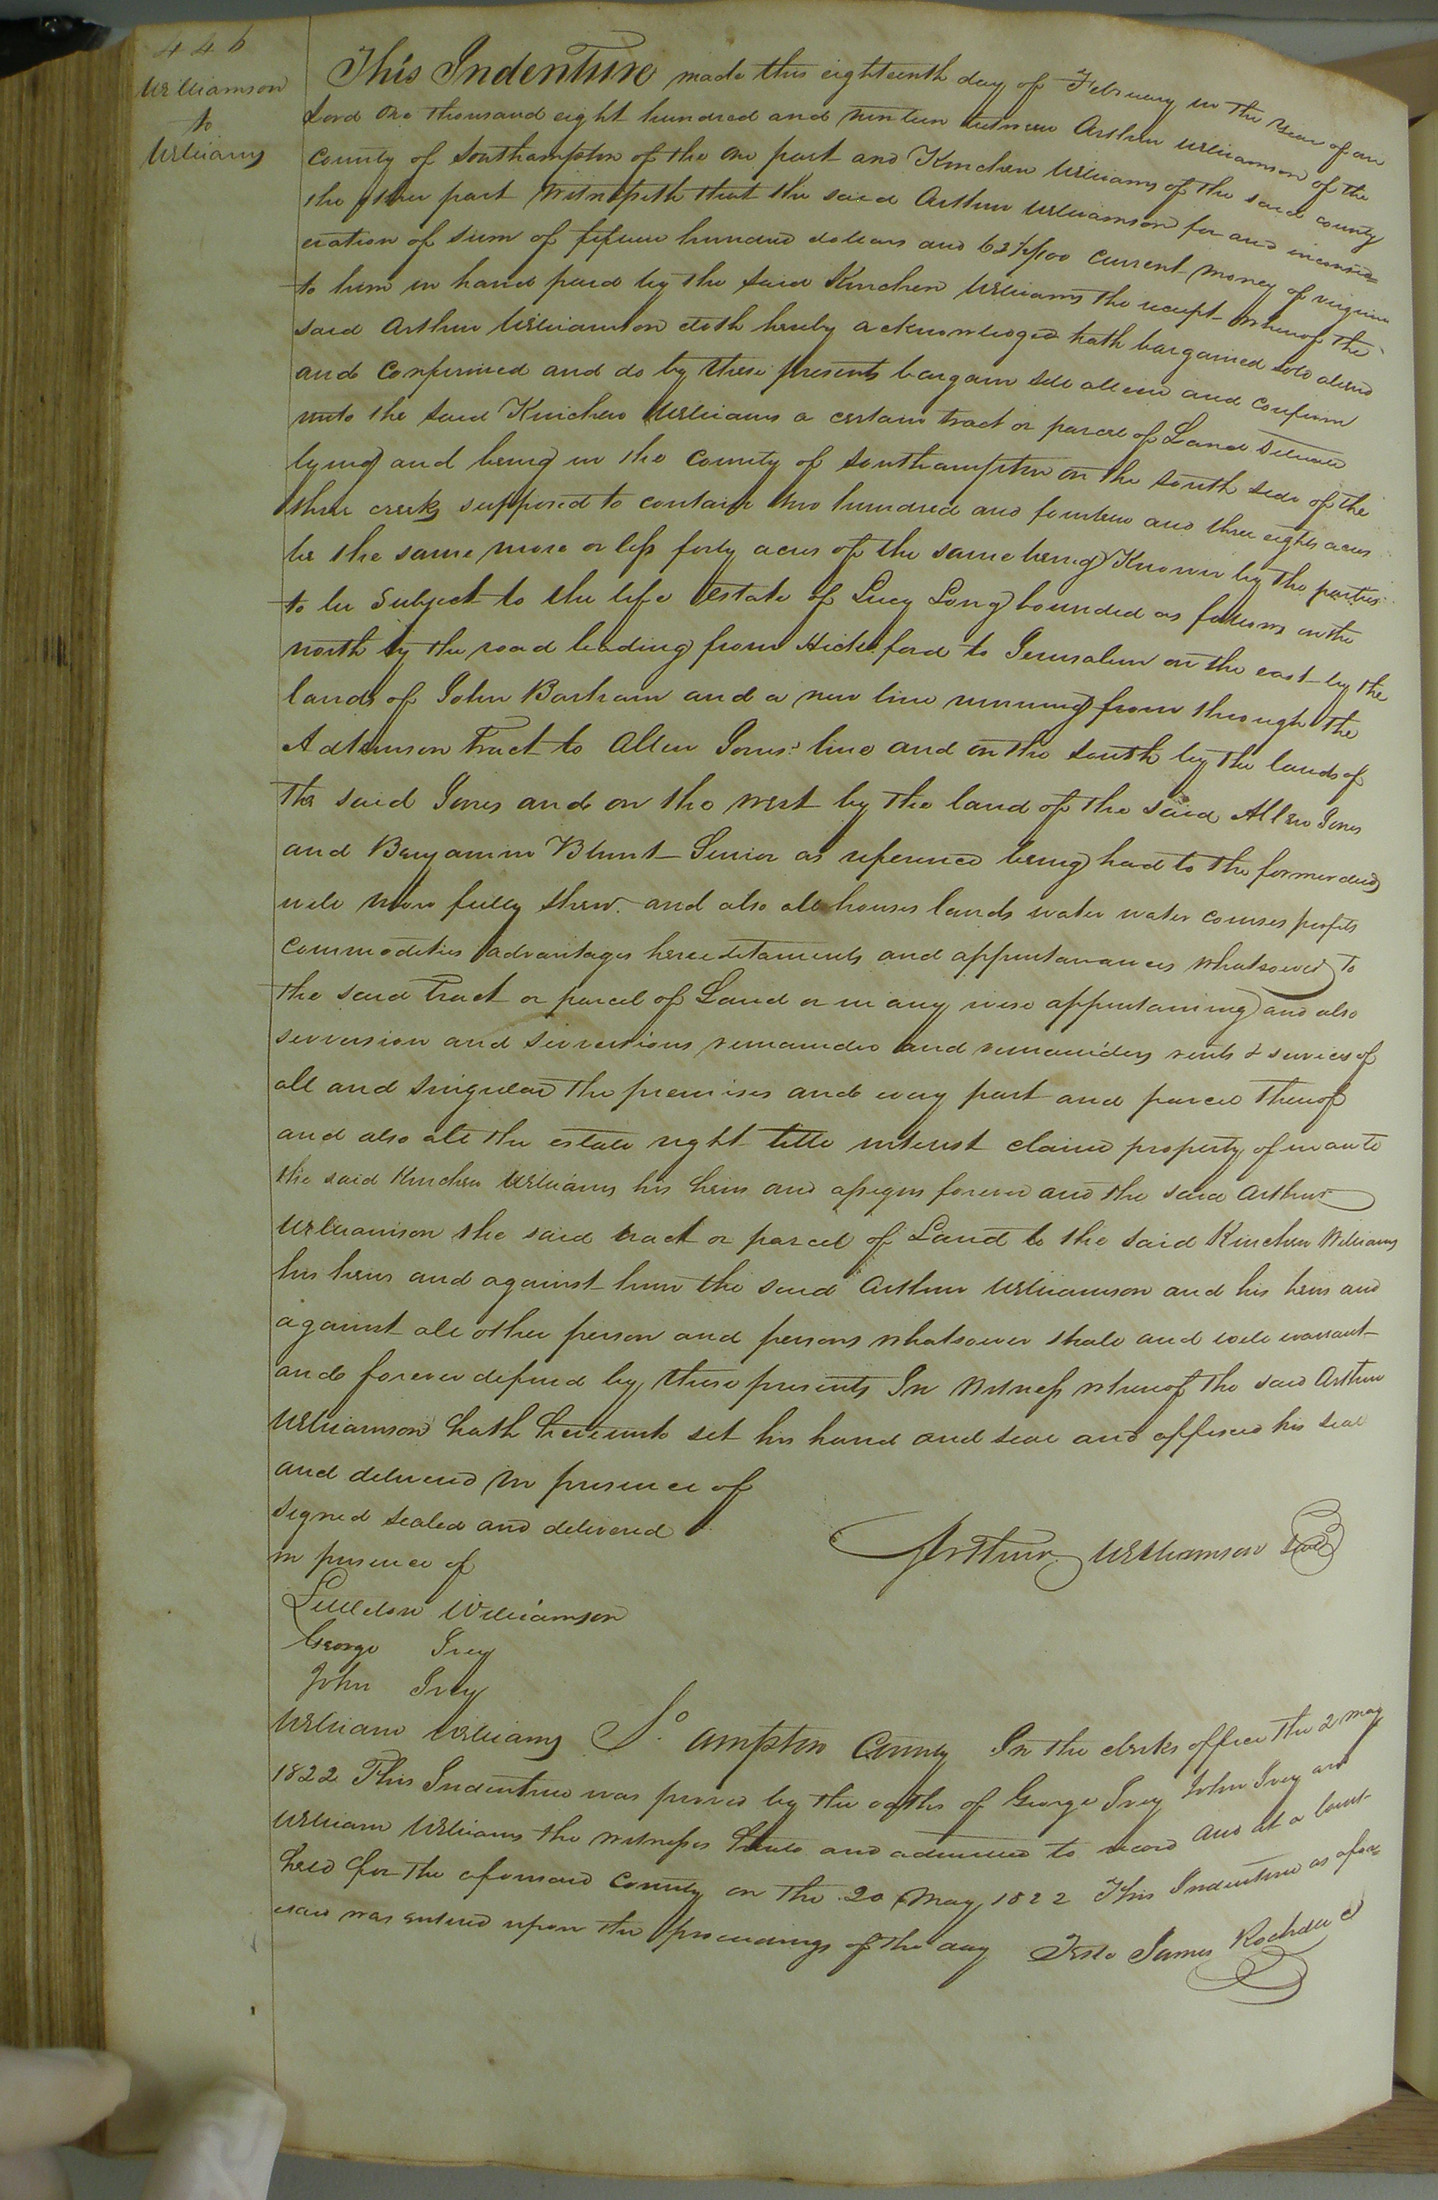 446
Williamson
to
Williams
This Indenture made this eighteenth day of February in the year of our
Lord one thousand eight hundred and ninteen between Arthur Williamson of the
county of Southampton of the one part and Kinchen Williams of the said county
the other part Witnesseth that the said Arthur Williamson for and in consid=
eration of sum of fifteen hundred dollars and 62½/100 current money of virginia
to him in hand paid by the said Kinchen Williams the receipt whereof the
said Arthur Williamson doth hereby acknowledged hath bargained sold aliend
and confirmed and do by these presents bargain sell alien and confirm
unto the said Kinchen Williams a certain tract or parcel of Land situate
lying and being in the county of Southampton on the south side of the
three creeks supposed to contain two hundred and fourteen and three eights acres
be the same more or less forty acres of the same being Known by the parties
to be subject to the life Estate of Lucy Long bounded as follows on the
north by the road leading from Hicksford to Jerusalem on the east by the
lands of John Barham and a new line running from through the
Adkinson Tract to Allen Jones' line and on the south by the lands of
the said Jones and on the west by the land of the said Allen Jones
and Benjamin Blunt Senior as reference being had to the former deeds
will more fully shew. and also all houses lands water water courses profits
commodities advantages hereditaments and appurtanances whatsoever to
the said Tract or parcel of Land or in any wise appurtaining and also
reversion and reversions remainder and remainders rents & services of
all and singular the premises and every part and parcel thereof
and also all the estate right title interest claim property of in and to
the said Kinchen Williams his heirs and assigns forever and the said Arthur
Williamson the said tract or parcel of Land to the said Kinchen Williams
his heirs and against him the said Arthur Williamson and his heirs and
against all other person and persons whatsoever shall and will warrant
and forever defend by these presents In Witness whereof the said Arthur
Williamson hath hereunto set his hand and seal and affixed his seal
and delivered in presence of
signed sealed and delivered
in presence of
Arthur Williamson Seal
Littleton Williamson
George Ivey
John Ivey
William Williams
So. ampton County In the clerks office the 2 may
1822 This Indenture was proved by the oaths of George Ivey John Ivey and
William Williams the witnesses hereto and admitted to record and at a Court
held for the aforesaid County on the 20 May 1822 This Indenture as afore=
said was entered upon the proceedings of the day Teste James Rochelle C